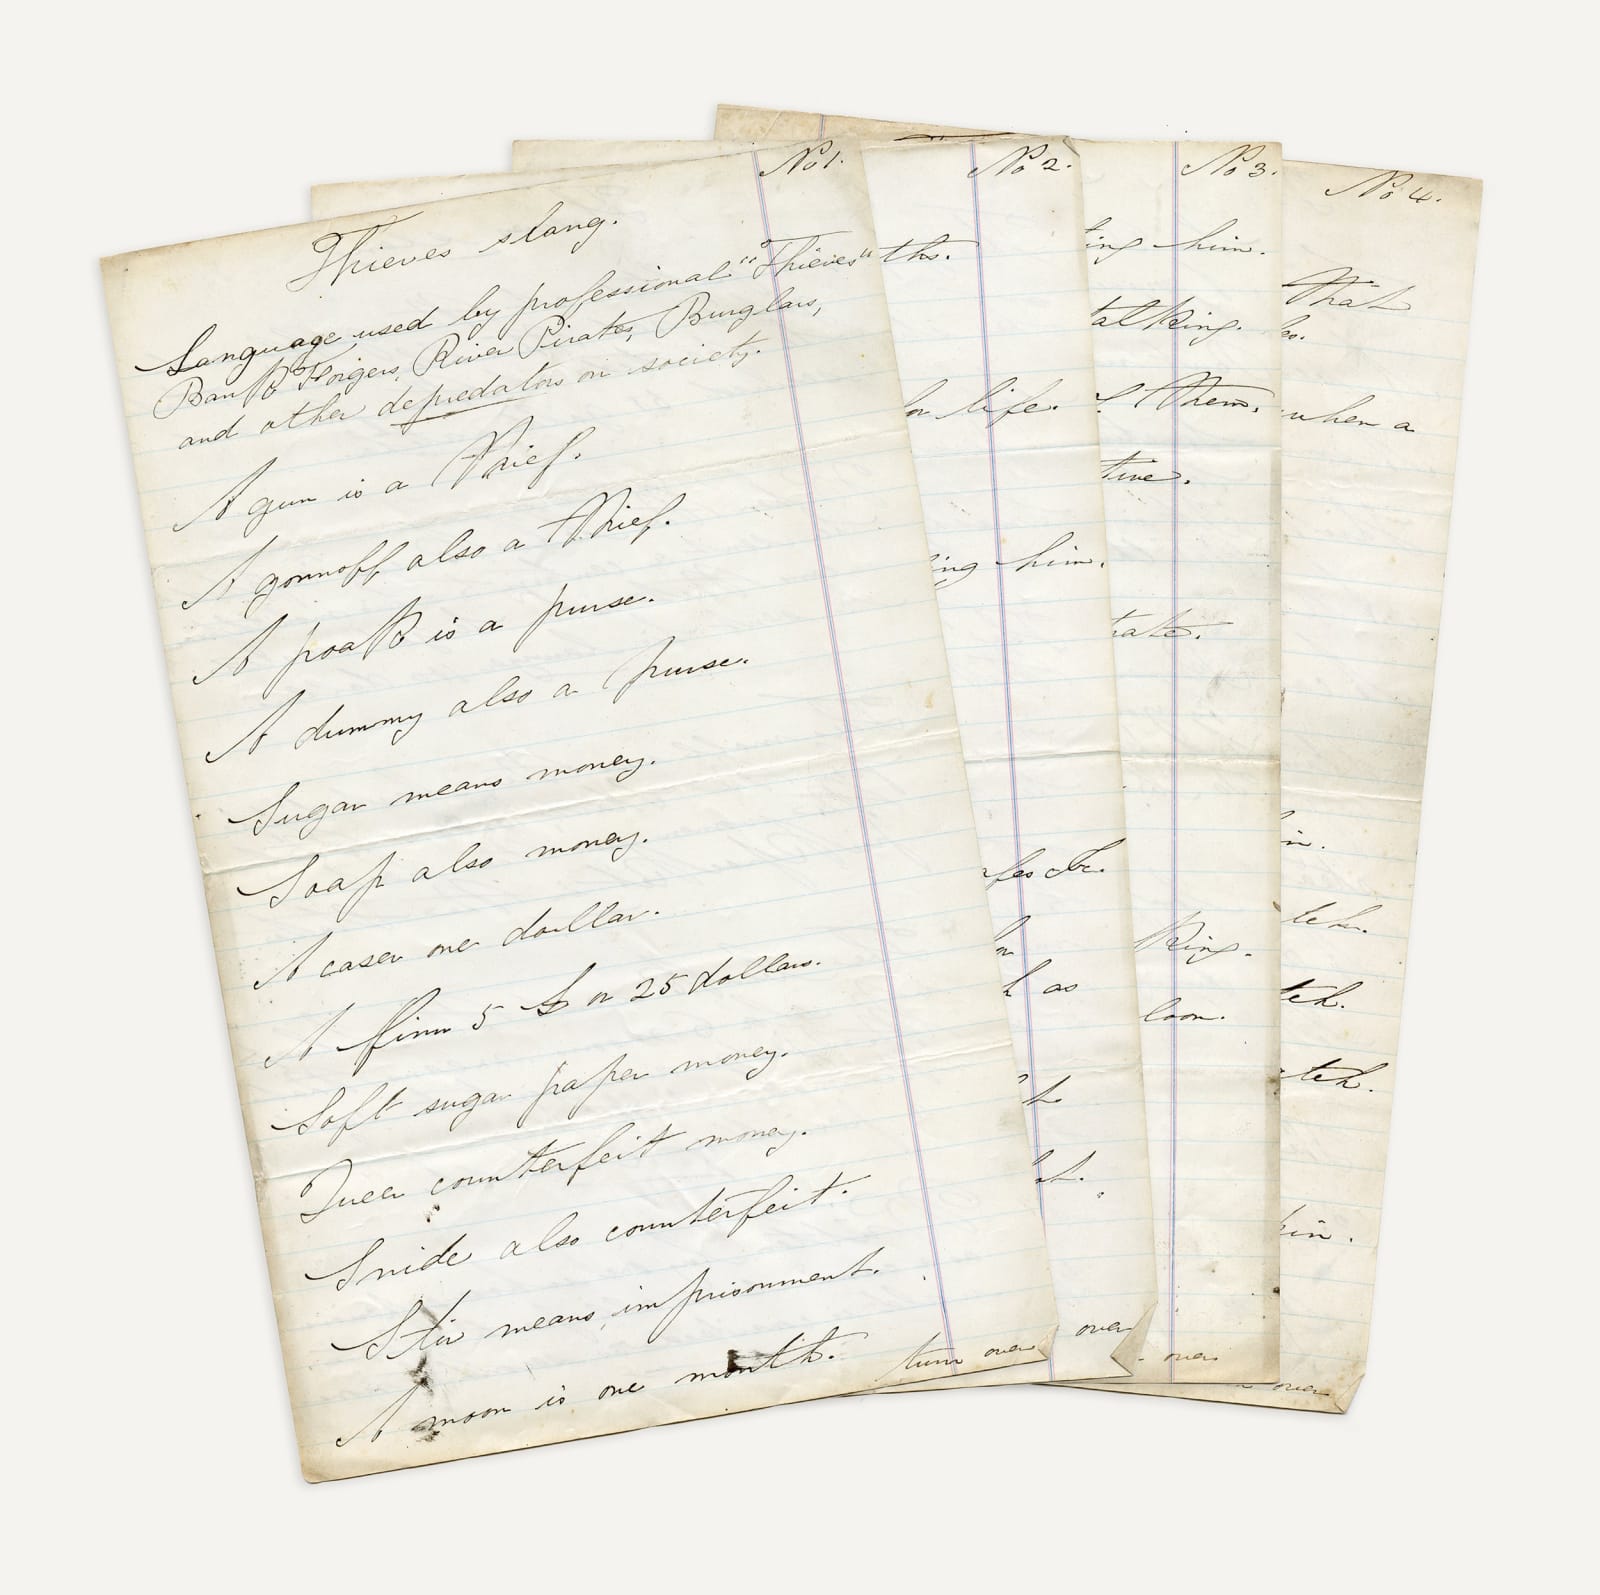 No 1.
Thieves slang.
Language used by professional "Thieves"
Bank Forgers, River Pirates, Burglars,
and other depredators on society.
A gun is a Thief.
A gonnoff also a Thief.
A poak is a purse.
A dummy also a purse.
Sugar means money.
Soap also money.
A caser one dollar.
A finn 5 $ or 25 dollars.
Soft sugar paper money.
Queer counterfeit money.
Snide also counterfeit.
Stir means imprisonment.
A moon is one month.
turn over
No 2.
ths.
or life.
ing him.
or
as
over
No 3.
ing him.
talking.
them.
tive.
rate.
king.
loon.
over
No 4.
that
when a
tch.
tch.
tch.
over